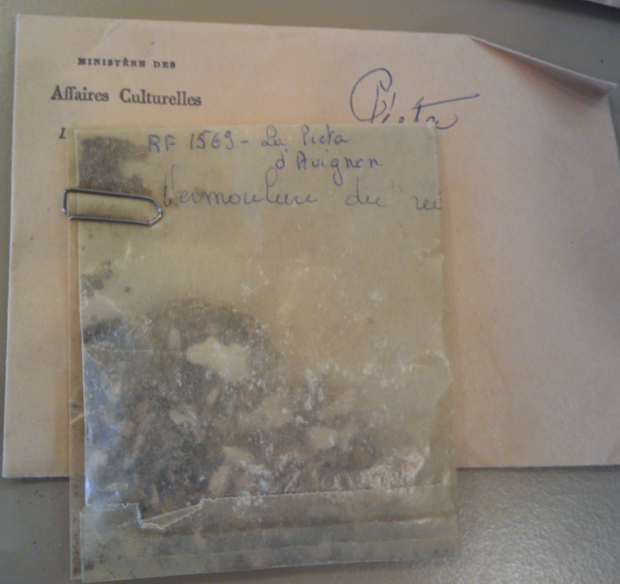 MINISTÈRE DES
Affaires Culturelles
Pieta
RF 1569 - La Pieta
d'Avignon
Vermoulure du